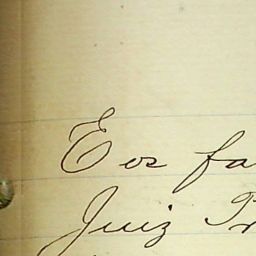 E os fa
Juiz Pr